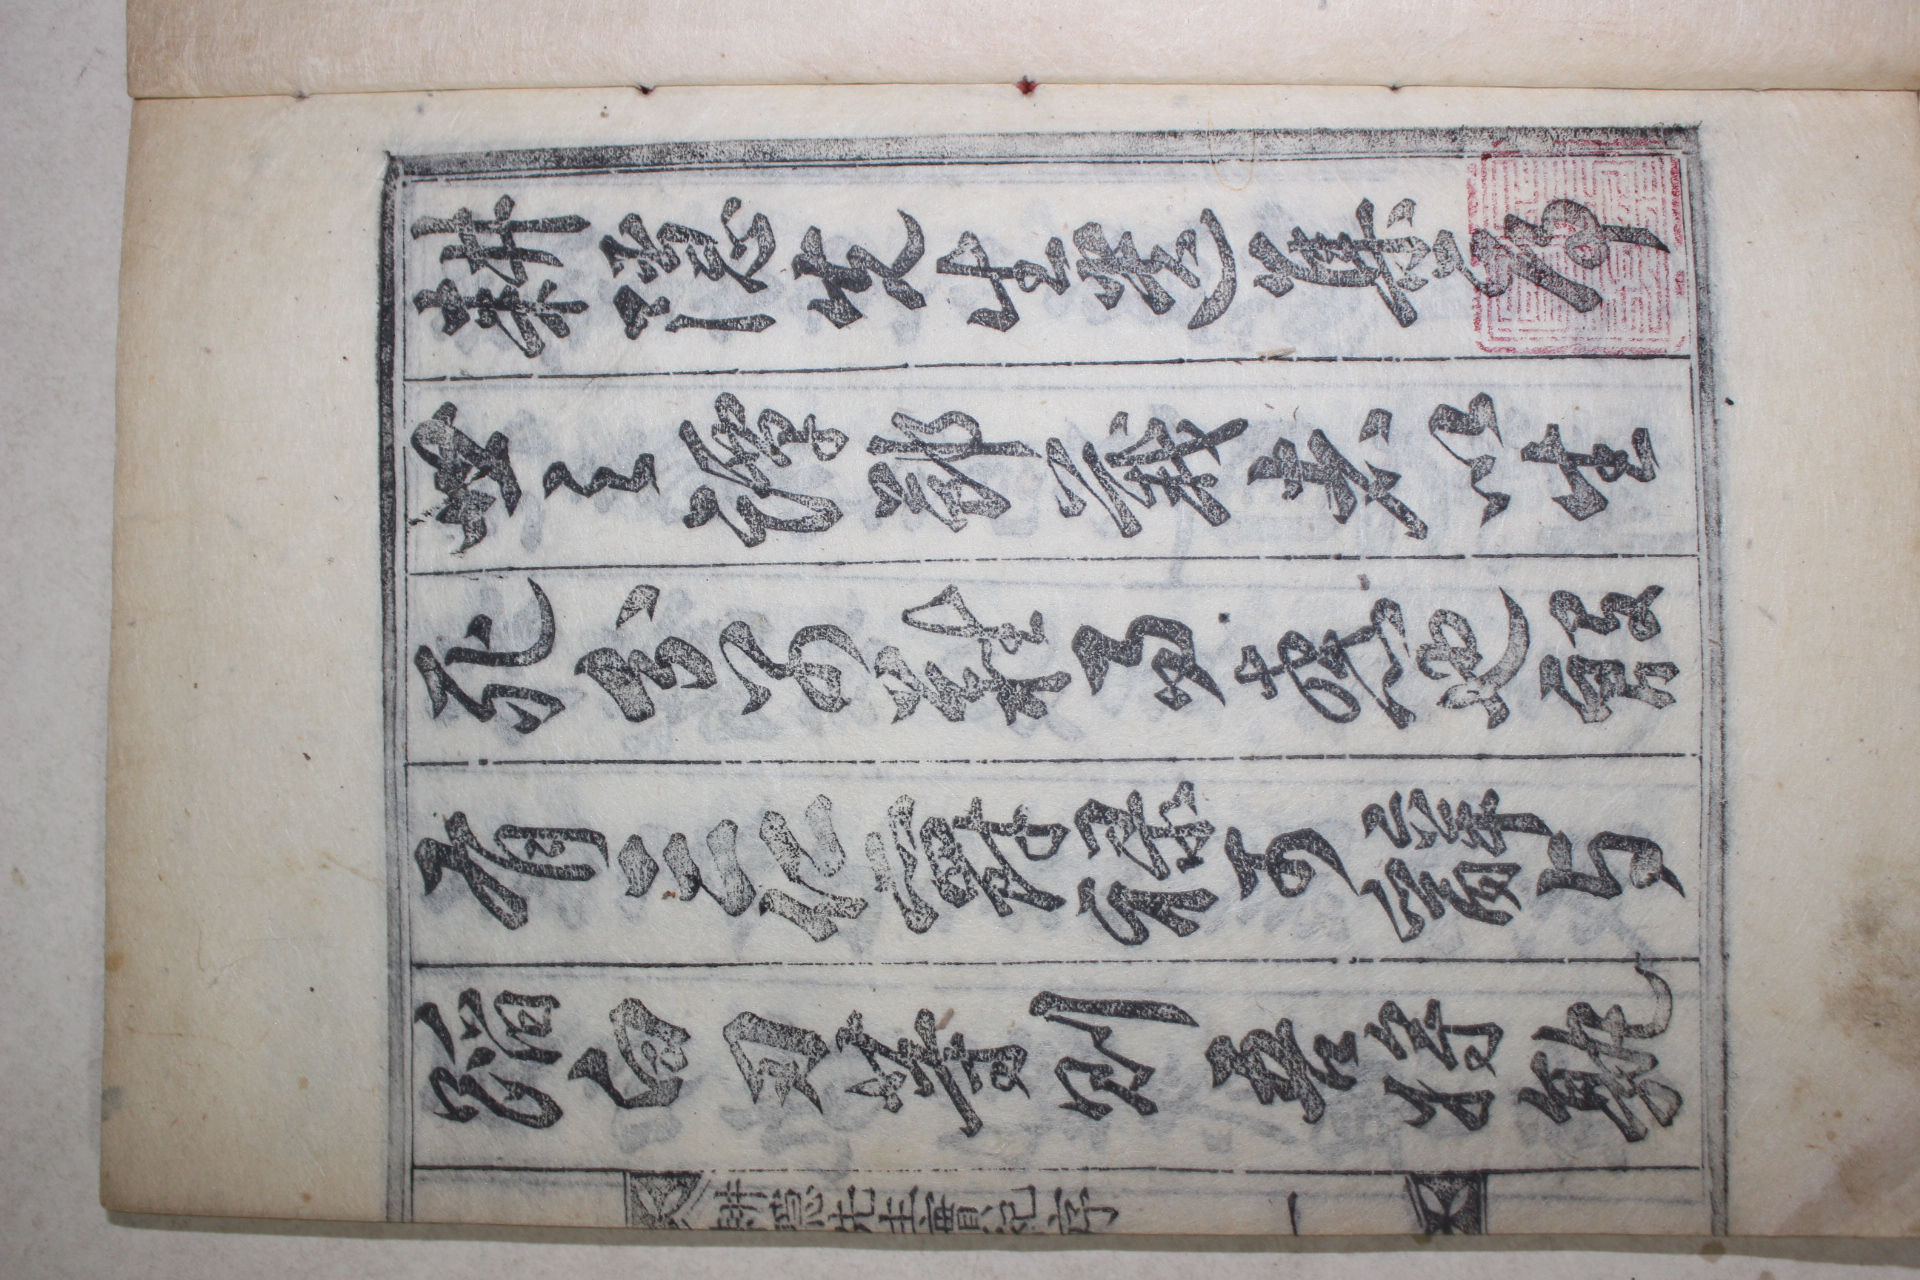 耕隱先生遺集序
世之譚節義者以生
死分別難易惷也殷
有三仁爵祿可辭与
蹈白刃等則吾將孰
耕隱先生實紀序 一